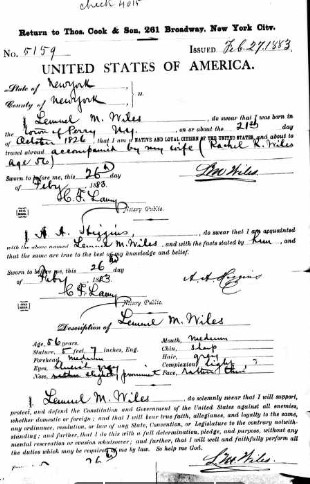 check 4015
Return to Thos. Cook & Son, 261 Broadway, New York City.
No. 5159 ISSUED Feb. 27. 1883.
UNITED STATES OF AMERICA.
State of New York
County of New York
I Lemuel M. Wiles, do swear that I was born in
the town of Perry N.Y., on or about the 21st day
of October 1826, that I am a NATIVE AND LOYAL CITIZEN OF THE UNITED STATES, and about to
travel abroad accompanied by my wife (Rachel R. Wiles
age 52)
Sworn to before me, this 26th day
of Feby 1883.
L M Wiles.
Notary Public.
I A. A. Higgins, do swear that I am acquainted
with the above named Lemuel M. Wiles, and with the facts stated by him, and
that the same are true to the best of my knowledge and belief.
Sworn to before me, this 26th day
of Feby 1883
A A Higgins
Notary Public.
Description of Lemuel M. Wiles
Age, 56 years. Mouth, medium
Stature, 5 feet, 7 inches, Eng. Chin,
Forehead, medium Hair, gray
Eyes, Complexion, light
Nose, Face,
I Lemuel M. Wiles, do solemnly swear that I will support,
protect, and defend the Constitution and Government of the United States against all enemies,
whether domestic or foreign; and that I will bear true faith, allegiance, and loyalty to the same,
any ordinance, resolution, or law of any State, Convention, or Legislature to the contrary notwith-
standing; and further, that I do this with a full determination, pledge, and purpose, without any
mental reservation or evasion whatsoever; and further, that I will well and faithfully perform all
the duties which may be required of me by law. So help me God.
26th
L M Wiles.